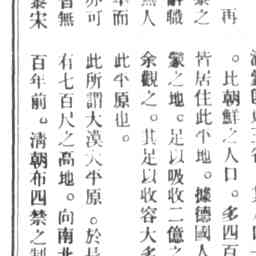 再
。此朝鮮之人口。多四百
皆居住此平地。據德國人
蒙之地。足以吸收二億之
余觀之。其足以收容大多
此平原也。
此所謂大漠大平原。於長
有七百尺之高地。向南北
百年前。清朝布四禁之制
之
辭職
無人
而
亦可
皆無
秦宋